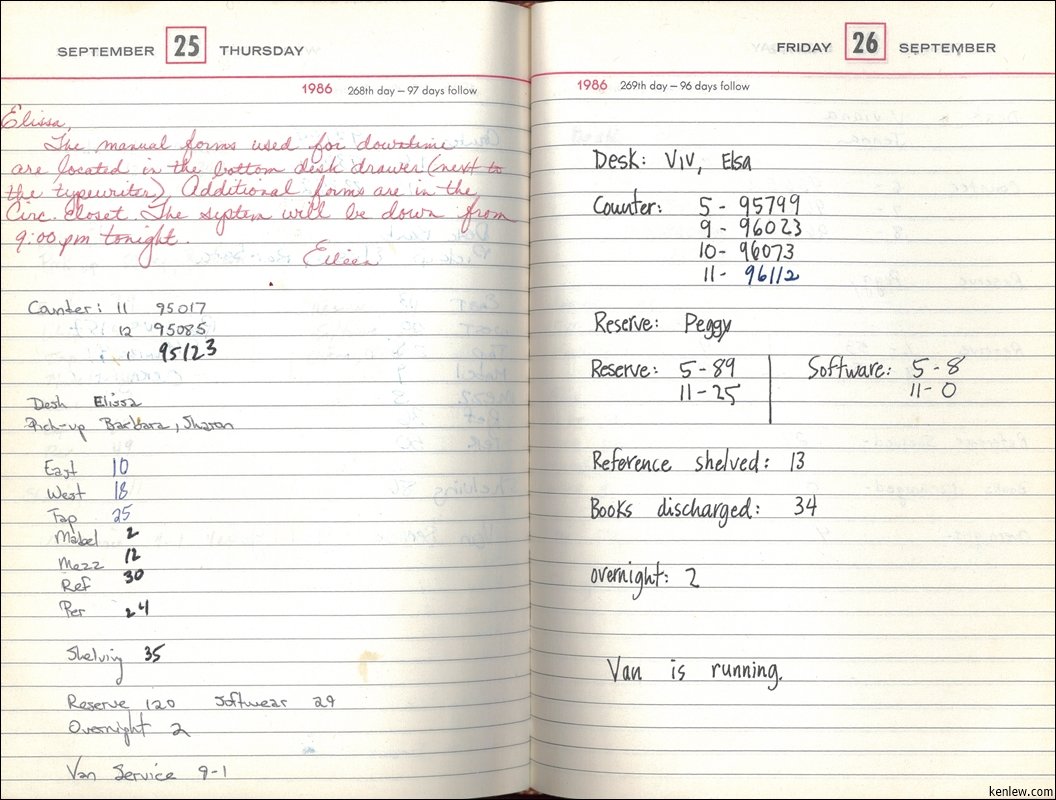 SEPTEMBER 25 THURSDAY
1986 268th day – 97 days follow
Elissa,
The manual forms used for downtime
are located in the bottom desk drawer (next to
the typewriter). Additional forms are in the
Circ. closet. The system will be down from
9:00 pm tonight.
Eileen
Counter: 11 95017
12 95085
1 95123
Desk Elissa
Pick-up Barbara, Sharon
East 10
West 18
Tap 25
Mabel 2
Mezz 12
Ref 30
Per 24
Shelving 35
Reserve 120 Softwear 29
Overnight 2
Van Service 9-1
FRIDAY 26 SEPTEMBER
1986 269th day – 96 days follow
Desk: Viv, Elsa
Counter: 5 - 95799
9 - 96023
10 - 96073
11 - 96112
Reserve: Peggy
Reserve: 5 - 89 Software: 5 - 8
11 - 25 11 - 0
Reference shelved: 13
Books discharged: 34
overnight: 2
Van is running.
kenlew.com